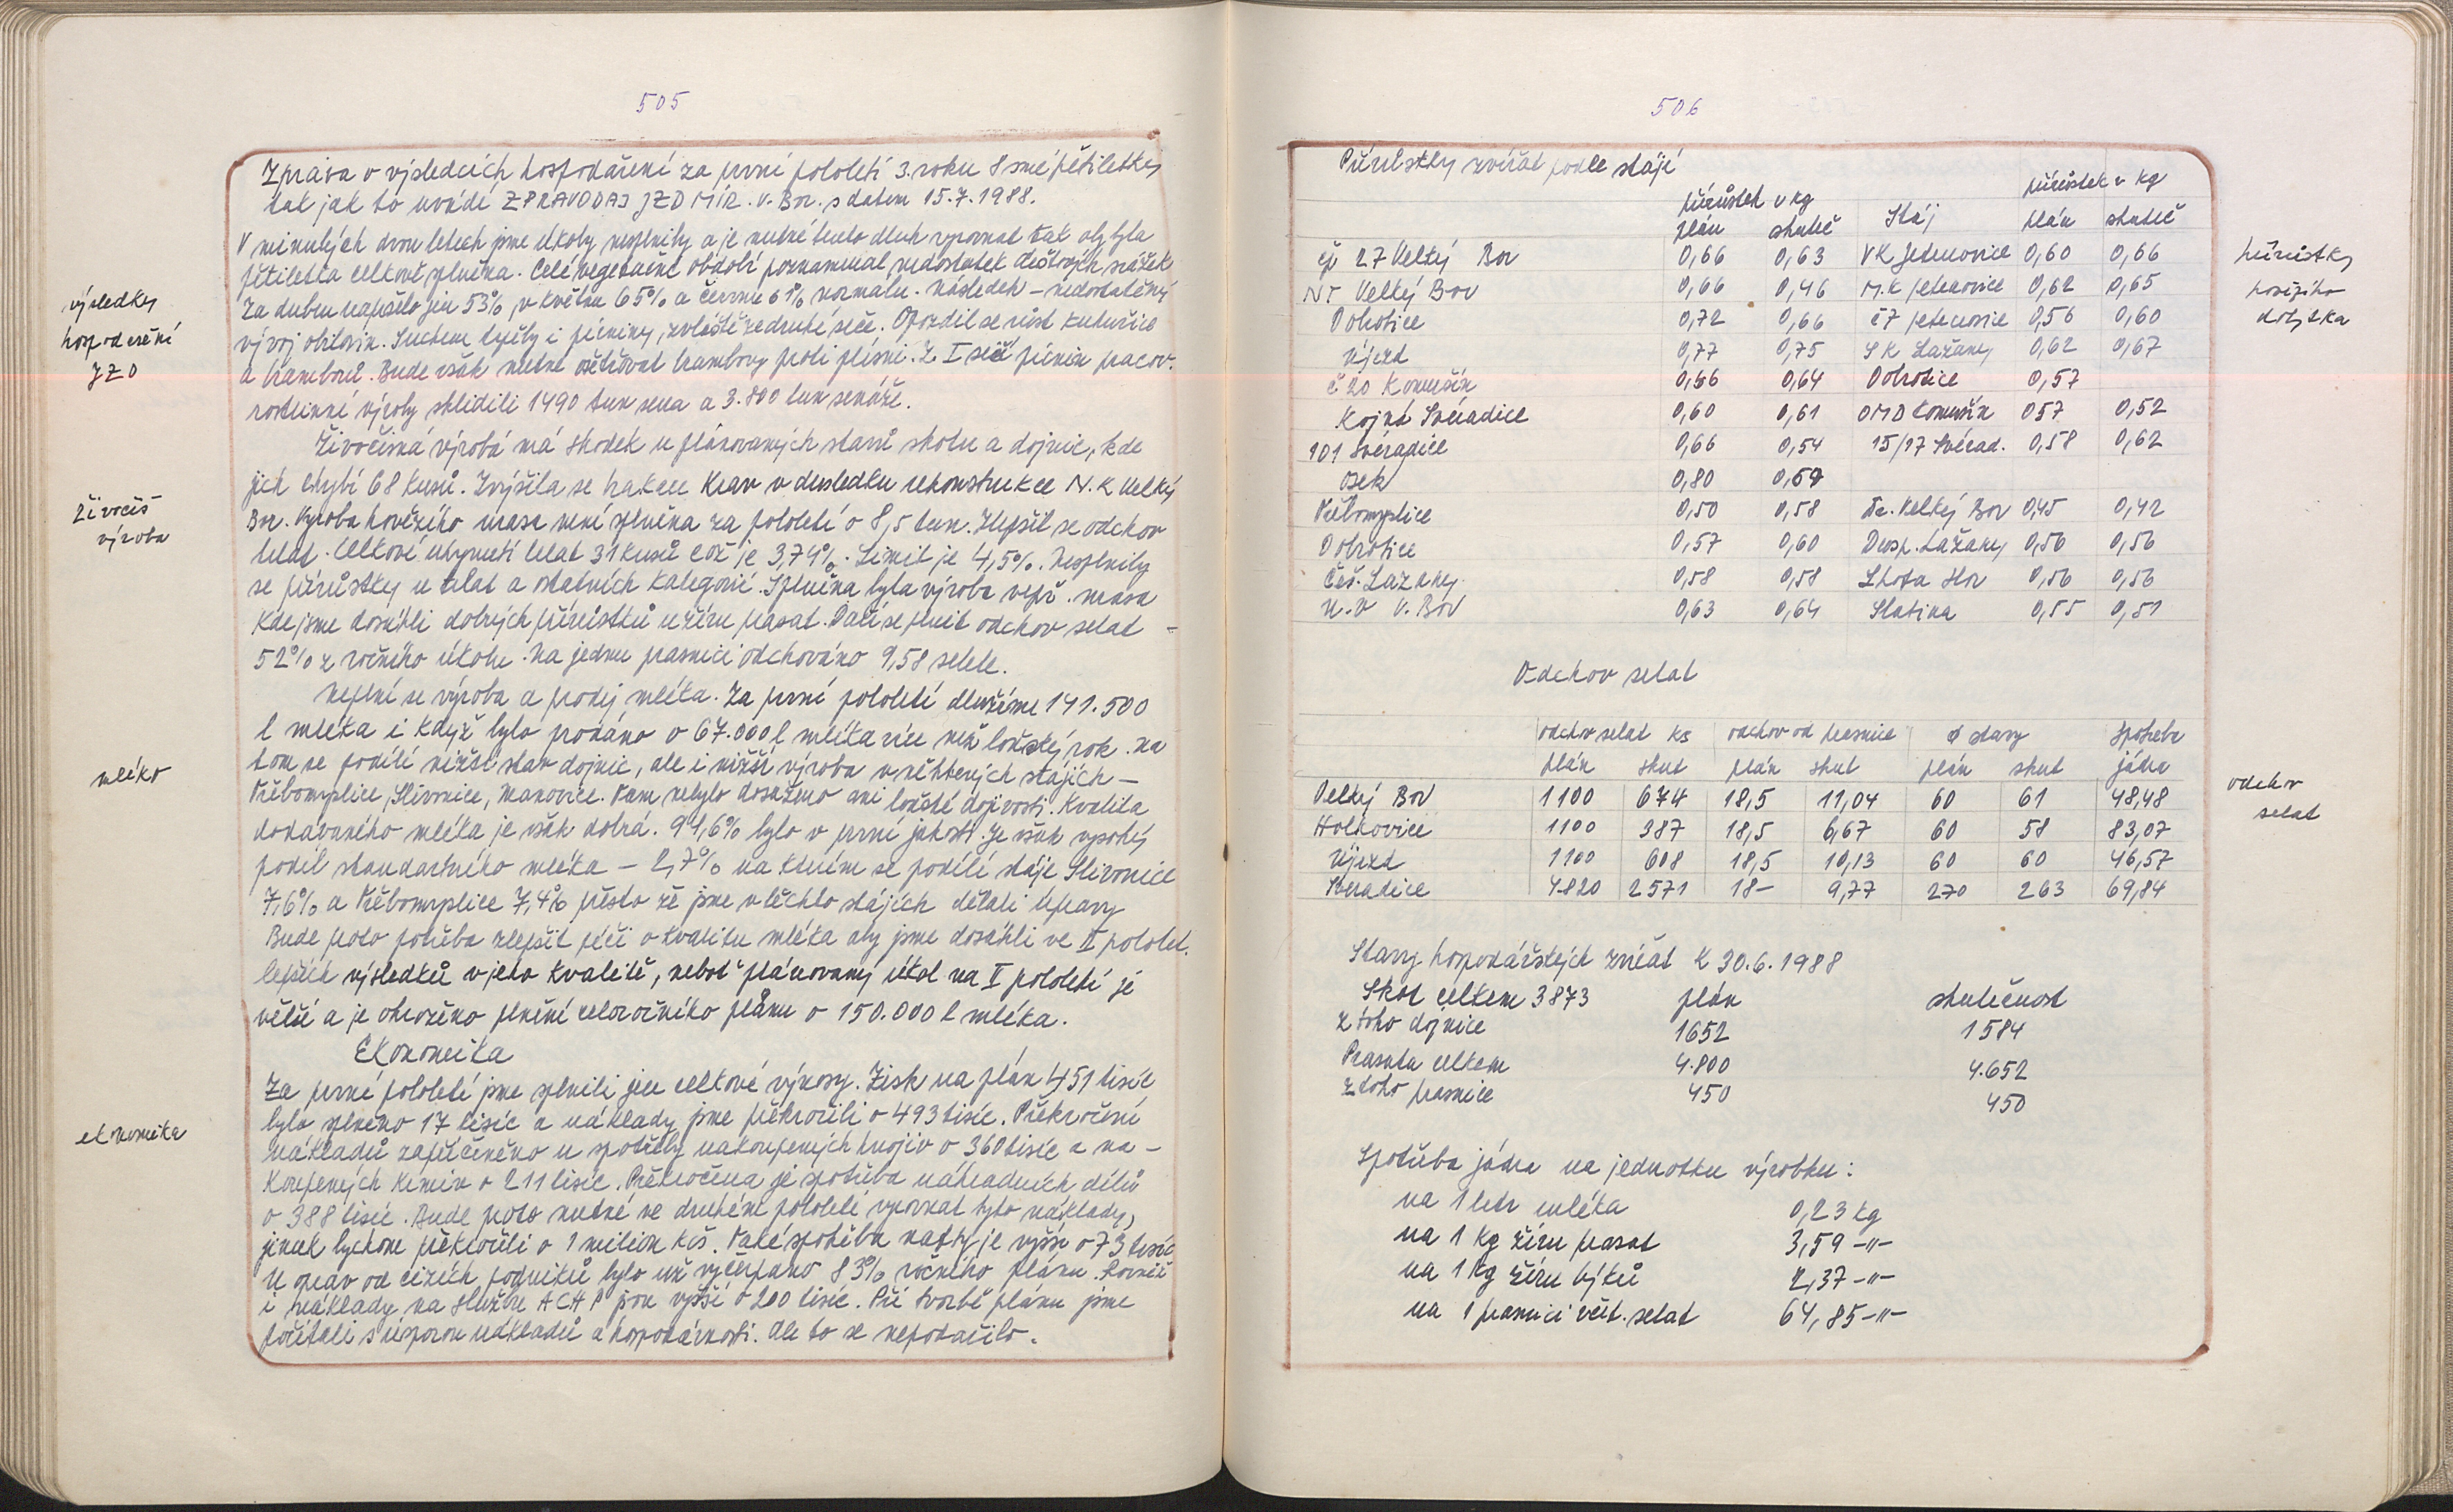 505
Zpráva o výsledcích hospodaření za první pololetí 3. roku 8 smé pětiletky
tak jak to uvádí ZPRAVODAJ JZD MÍR. V. Bor. s datem 15.7.1988.
V minulých dvou letech jsme úkoly nesplnily a je nutné tento dluh vyrovnat tak aby byla
pětiletka celkově splněna. Celé vegetační období poznamenal nedostatek dešťových srážek
Za duben napršelo jen 53%, v květnu 65% a červnu 61% normálu. Následek - nedostatečný
výsledky
hospodaření
JZD
vývoj obilovin. Suchem trpěly i pícniny, zvláště ze druhé seče. Opozdil se růst kukuřice
a brambor. Bude však nutné ošetřovat brambory proti plísni. Z I seče pícnin pracov.
rostlinné výroby sklidili 1490 tun sena a 3.800 tun senáže.
Živočišná výroba má skodek u plánovaných stavů skotu a dojnic, kde
jich chybí 68 kusů. Zvýšila se brakace krav v důsledku rekonstrukce N.K Velký
živočiš
výroba
Bor. Výroba hovězího masa není splněna za pololetí o 8,5 tun. Zlepšil se odchov
telat. Celkové uhynutí telat 31 kusů což je 3,74%. Limit je 4,5%. Nesplnily
se přírůstky u telat a ostatních kategorií. Splněna byla výroba vepř. masa
kde jsme dosáhli dobrých přírůstků u žíru prasat. Daří se plnit odchov selat -
52% z ročního úkolu. Na jednu prasnici odchováno 9,58 selete.
Neplní se výroba a prodej mléka. Za první pololetí dlužíme 141.500
l mléka i když bylo prodáno o 67.000 l mléka více než loňský rok. Na
mléko
tom se podílí nižší stav dojnic, ale i nižší výroba v některých stájích -
Třebomyslice, Slivonice, Manovice. Tam nebylo dosaženo ani loňské dojivosti. Kvalita
dodávaného mléka je však dobrá. 91,6% bylo v první jakosti. Je však vysoký
podíl standartního mléka - 2,7% na kterém se podílí stáje Slivonice
7,6% a Třebomyslice 7,4% přesto že jsme v těchto stájích dělali úpravy
Bude proto potřeba zlepšit péči o kvalitu mléka aby jsme dosáhli ve II pololet.
lepších výsledků v jeho kvalitě, neboť plánovaný úkol na II pololetí je
větší a je ohroženo plnění celoročního plánu o 150.000 l mléka.
Ekonomika
Za první pololetí jsme splnili jen celkové výnosy. Zisk na plán 451 tisíc
ekonomika
bylo splněno 17 tisíc a náklady jsme překročili o 493 tisíc. Překročení
nákladů zapříčiněno u spotřeby nakoupených hnojiv o 360 tisíc a na-
koupených krmiv o 211 tisíc. Překročena je spotřeba náhradních dílů
o 388 tisíc. Bude proto nutné ve druhém pololetí vyrovnat tyto náklady,
jinak bychom překročili o 1 milion Kčs. Také spotřeba nafty je vyšší o 73 tisíc
U oprav od cizích podniků bylo už vyčerpáno 83% ročního plánu. Rovněž
i náklady na službu ACHP jsou vyšší o 200 tisíc. Při tvorbě plánu jsme
počítali s úsporou nákladů a hospodárnosti. Ale to se nepodařilo.
506
Přírůstky zvířat podle stájí
přírůstek v kg přírůstek v kg
plán skuteč Stáj plán skuteč
čp 27 Velký Bor 0,66 0,63 VK Jetenovice 0,60 0,66
NT Velký Bor 0,66 0,46 M.K Jetenovice 0,62 0,65
Dobrotice 0,72 0,66 č7 Jetenovice 0,56 0,60
Újezd 0,77 0,75 SK Lažany 0,62 0,67
č 20 Komušín 0,66 0,64 Dobrotice 0,57
Kojná Svéradice 0,60 0,61 OMD Komušín 057 0,52
101 Svéradice 0,66 0,54 15/17 Svérad. 0,58 0,62
Osek 0,80 0,59
Třebomyslice 0,50 0,58 Te. Velký Bor 0,45 0,42
Dobrotice 0,57 0,60 Dvosp. Lažany 0,50 0,56
Čéš. Lažany 0,58 0,58 Lhota Hor 0,56 0,56
N.V V. Bor 0,63 0,64 Slatina 0,55 0,51
přírůstky
hovězího
dobytka
Odchov selat
odchov selat ks odchov od prasnice ø stavy Spotřeba
plán skut plán skut plán skut jádra
Velký Bor 1100 674 18,5 11,04 60 61 48,48
Holkovice 1100 387 18,5 6,67 60 58 83,07
Újezd 1100 608 18,5 10,13 60 60 46,57
Sveradice 4820 2571 18- 9,77 270 263 69,84
odchov
selat
Stavy hospodářských zvířat k 30.6.1988
Skot celkem 3873 plán skutečnost
z toho dojnice 1652 1584
Prasata celkem 4.800 4.652
z toho prasnice 450 450
Spotřeba jádra na jednotku výrobku:
na 1 litr mléka 0,23 kg
na 1 kg žíru prasat 3,59 -"-
na 1 kg žíru býků 2,37 -"-
na 1 prasnici včet. selat 64,85 -"-